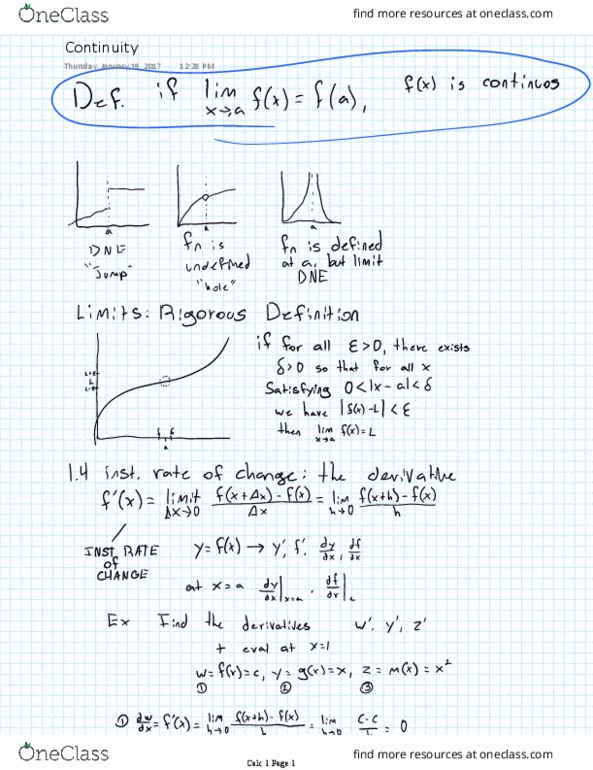 OneClass
find more resources at oneclass.com
Continuity
Thursday, January 19, 2017 12:28 PM
Def. if lim x→a f(x) = f(a), f(x) is continuos
a
a
a
DNE
"Jump"
fn is
undefined
"hole"
fn is defined
at a, but limit
DNE
Limits: Rigorous Definition
L+ε
L
L-ε
a
if for all ε>0, there exists
δ>0 so that for all x
Satisfying 0<|x-a|<δ
we have |f(x)-L|<ε
then lim x→a f(x)=L
1.4 inst. rate of change: the derivative
f'(x) = limit Δx→0 f(x+Δx)-f(x)/Δx = lim h→0 f(x+h)-f(x)/h
INST. RATE
OF
CHANGE
y=f(x) → y', f', dy/dx, df/dx
at x=a dy/dx|x=a, df/dx|a
Ex Find the derivatives w', y', z'
+ eval at x=1
w=f(x)=c, y=g(x)=x, z=m(x)=x²
① ② ③
① dw/dx = f'(x) = lim h→0 f(x+h)-f(x)/h = lim h→0 c-c/h = 0
OneClass
Calc 1 Page 1
find more resources at oneclass.com